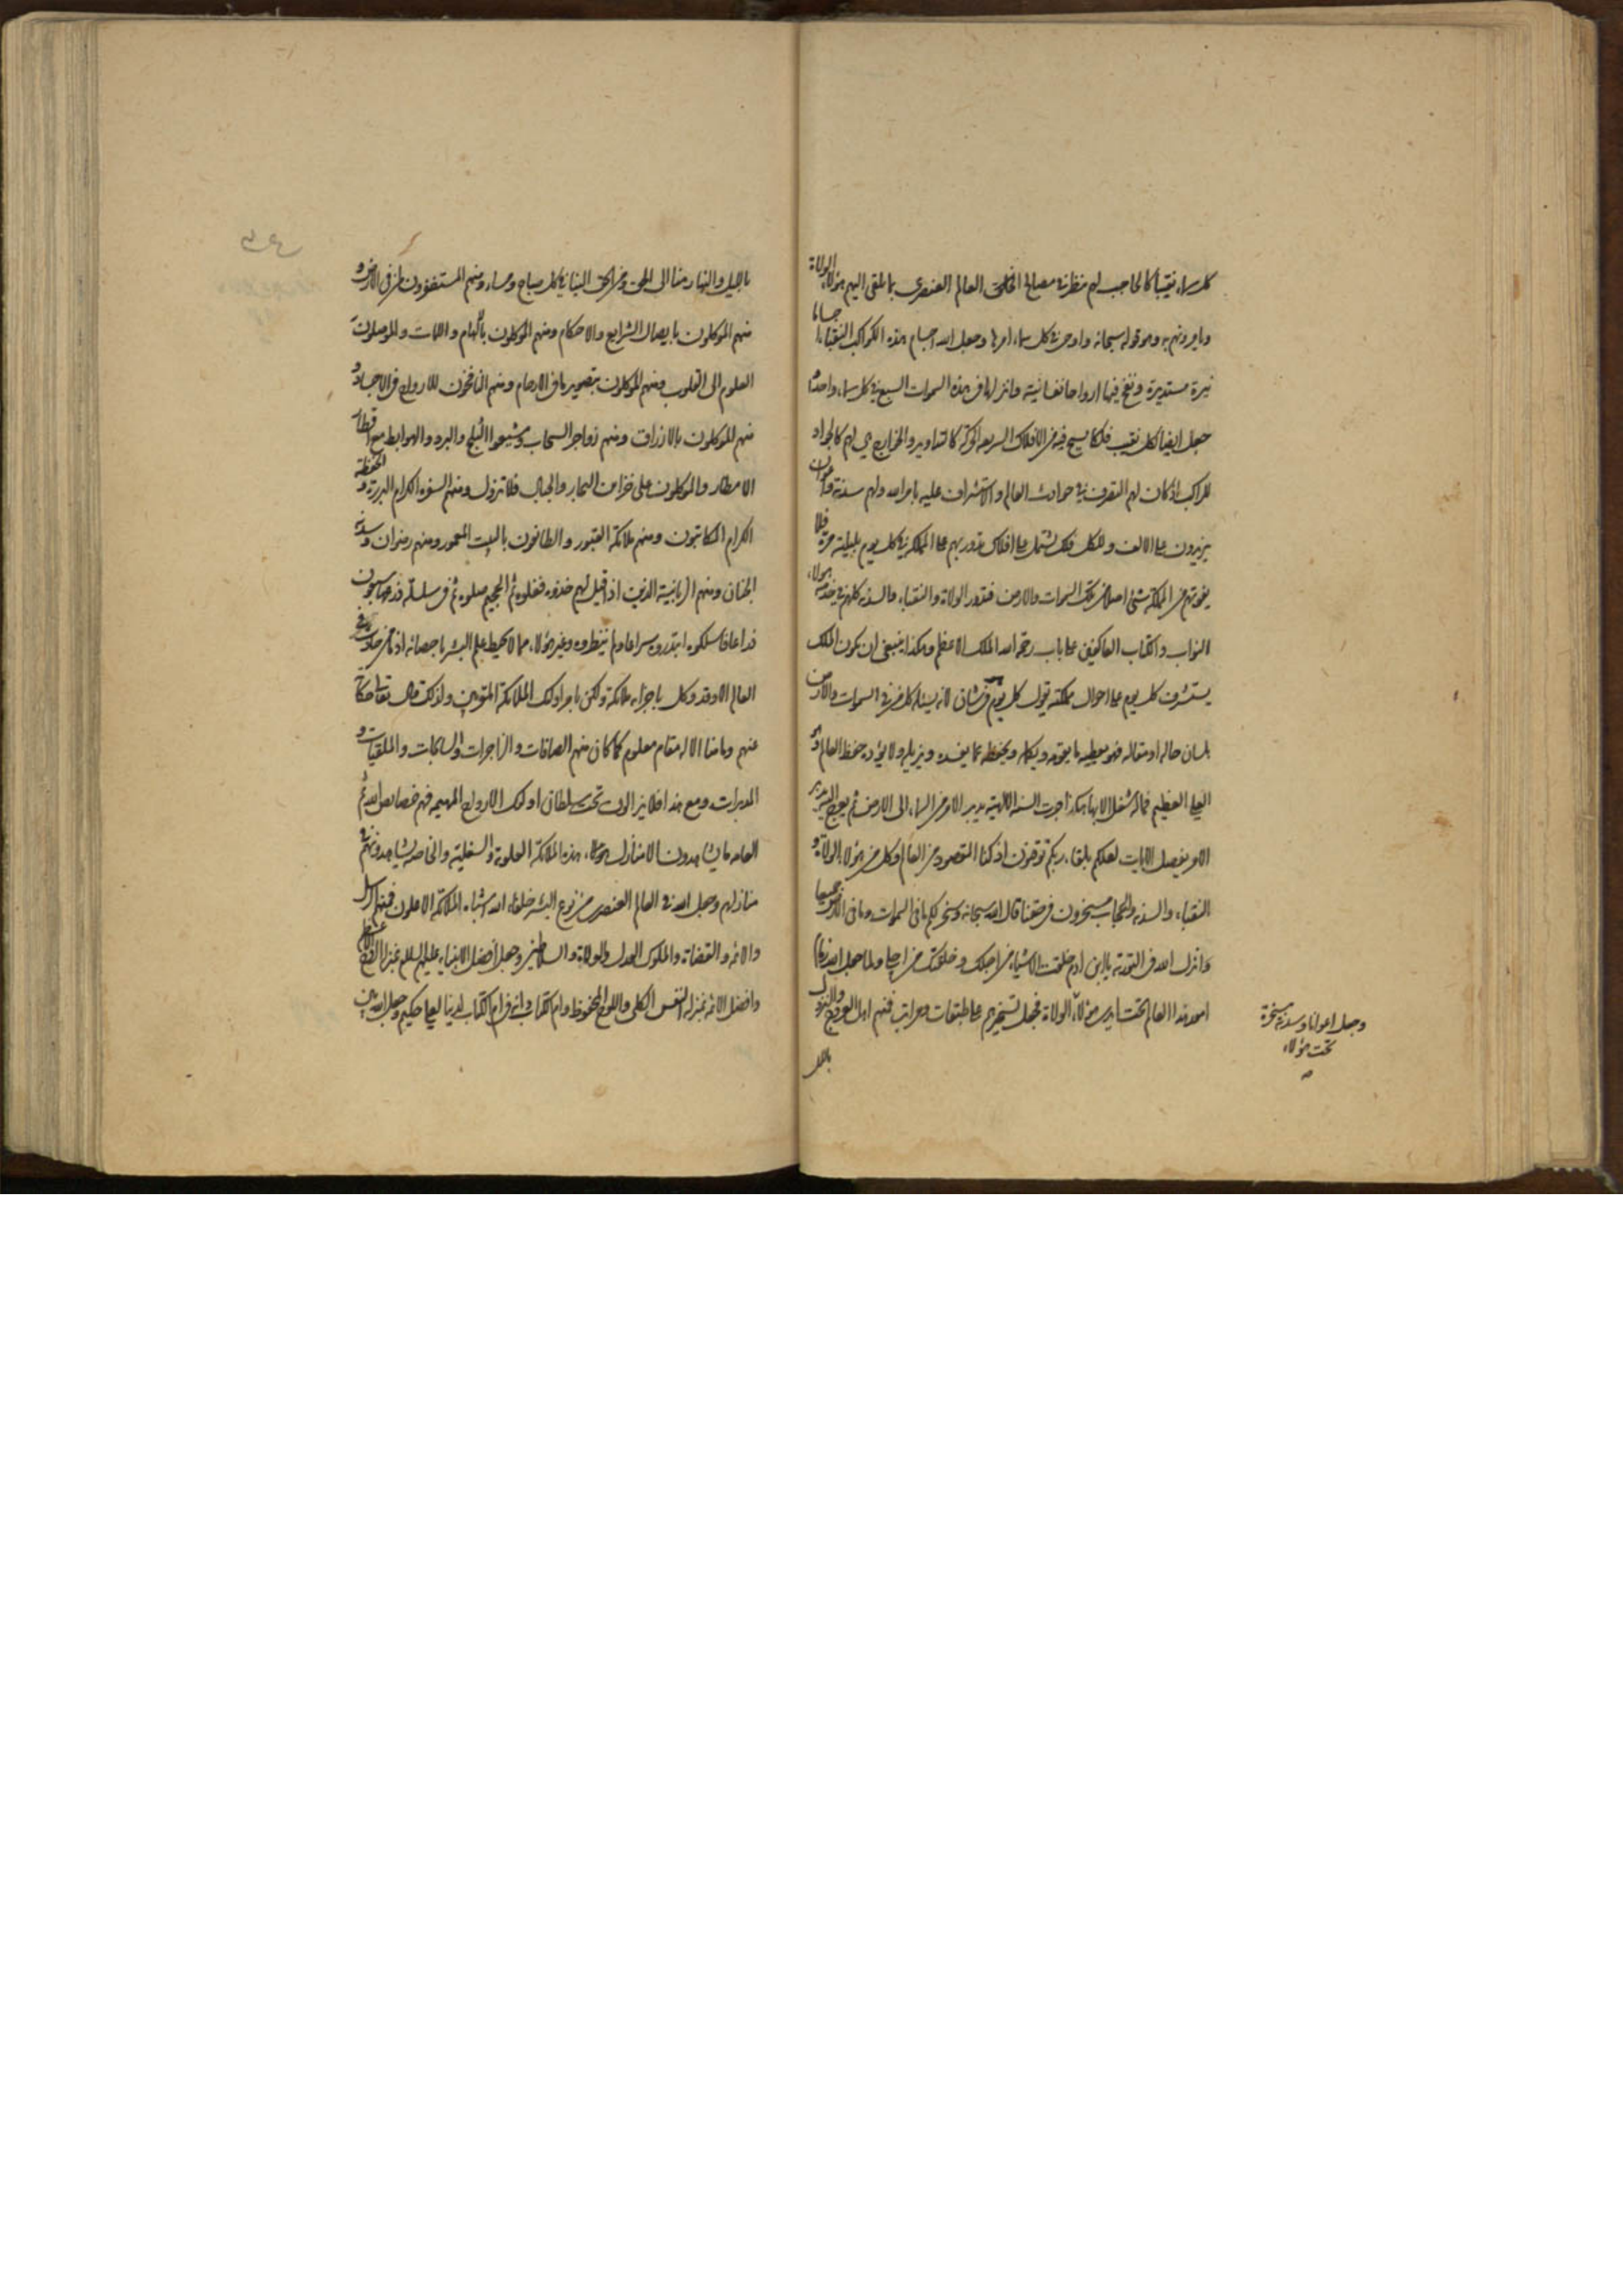 كل سماء نقيبا كالحاجب لهم ينظر في مصالح الخلق العالم العنصري بما يلقى اليهم هؤلاء الولاة
ويامرونهم به وهو قوله سبحانه واوحى في كل سماء امرها وجعل الله اجسام هذه الكواكب النقباء اجساما
نيرة مستديرة ونفخ فيها ارواحا نفسانية وانزلها في هذه السموات السبع في كل سماء واحد
جعل ايضا لكل نقيب فلكا يسبح فيه من الافلاك السريعة الحركة كالتداوير والخوارج هي لهم كالجواد
للراكب اذ كان لهم التصرف في حوادث العالم والاستشراف عليه بامر الله ولهم سدنة واعوان
يزيدون على الالف وللكل فلك يشتمل على افلاك تدور بهم على المملكة في كل يوم بليلته مرة فلا
يفوتهم من المملكة شيء اصلا من تلك السموات والارض فتدور الولاة والنقباء والسدنة كلهم في خدمة هؤلاء
النواب والكتاب العاكفين على باب رحمة الله الملك الاعظم وهكذا ينبغي ان يكون الملك
يستشرف كل يوم على احوال مملكته يقول كل يوم هو في شان لانه يسئله كل من في السموات والارض
بلسان حاله او مقاله فهو يعطيه ما يقومه ويكمله ويحفظه عما يفسده ويزيله ولا يؤده حفظ العالم وهو
العلي العظيم فما له شغل الا بها هكذا جرت السنة الالهية يدبر الامر من السماء الى الارض ثم يعرج اليه يدبر
الامر يفصل الايات لعلكم بلقاء ربكم توقنون اذ كنا المقصود من العالم وكل من هؤلاء الولاة و
النقباء والسدنة والحجاب مسخرون في حقنا قال الله سبحانه وسخر لكم ما في السموات وما في الارض جميعا
وانزل الله في التورية يا ابن ادم خلقت الاشياء من اجلك وخلقتك من اجلي ولما جعل الله زمام
امور هذا العالم تحت ايدي هؤلاء الولاة فجعل تسخيرهم على طبقات ومراتب فمنهم اهل العروج والنزول
بالليل
وجعل اعوانا وسدنة مسخرة
تحت هؤلاء
بالليل والنهار منا الى الحق ومن الحق الينا في كل صباح ومساء ومنهم المستغفرون لمن في الارض و
منهم الموكلون بايصال الشرايع والاحكام ومنهم الموكلون بالالهام واللمات والموصلون
العلوم الى القلوب ومنهم الموكلون بتصوير ما في الارحام ومنهم النافخون للارواح في الاجساد و
منهم الموكلون بالارزاق ومنهم زواجر السحاب ومشيعوا الثلج والبرد والهوابط مع قطار
الامطار والموكلون على خزاين البحار والجبال فلا تزول ومنهم السفرة الكرام البررة والحفظة
الكرام الكاتبون ومنهم ملائكة القبور والطائفون بالبيت المعمور ومنهم رضوان وسدنة
الجنان ومنهم الزبانية الذين اذا قيل لهم خذوه فغلوه ثم الجحيم صلوه ثم في سلسلة ذرعها سبعون
ذراعا فاسلكوه ابتدروه سراعا ولم ينظروه وغير هؤلاء مما لا يحيط علم البشر باحصائه اذ ما من حادث في
العالم الا وقد وكل باجزائه ملائكة ولكن بامر اولئك الملائكة المقربين ولذلك قال تعالى حكاية
عنهم وما منا الا له مقام معلوم كما كان منهم الصافات والزاجرات والسابحات والملقيات و
المدبرات ومع هذا فلا يزالون تحت سلطان اولئك الارواح المهيمه فهم خصائص الله ثم
العامه ما يشاهدون الا منازل هؤلاء هذه الملائكة العلوية والسفلية والخاصة يشاهدونهم في
منازلهم وجعل الله في العالم العنصري من نوع البشر خلفاء الله اشباه الملائكة الاعلون فمنهم الرسل
والائمة والقضاة والملوك العدل والولاة والسلاطين وجعل افضل الانبياء عليهم السلم بمنزلة القلم
وافضل الائمة بمنزلة النفس الكلي واللوح المحفوظ وام الكتاب وانه في ام الكتاب لدينا لعلي حكيم وجعل الله بين